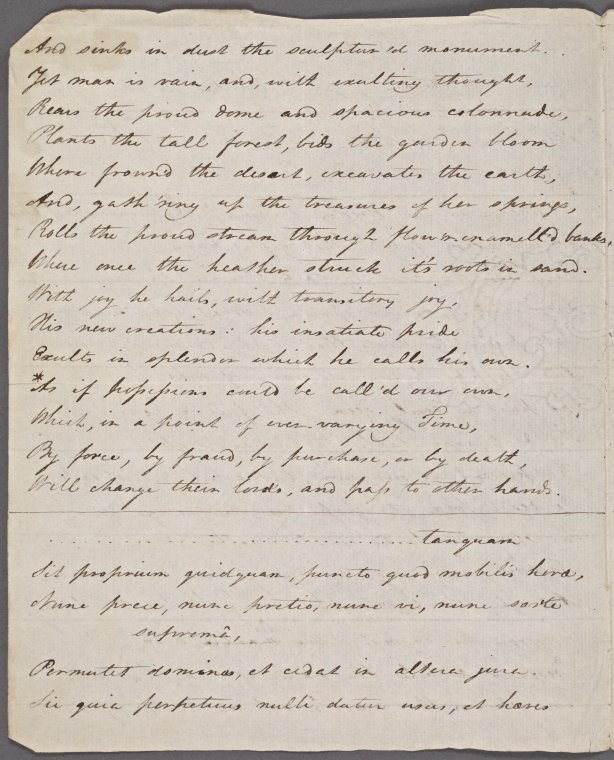 And sinks in dust the sculptur'd monument.
Yet man is vain, and, with exulting thought,
Rears the proud dome and spacious colonnade,
Plants the tall forest, bids the garden bloom
Where frown'd the desert, excavates the earth,
And, gath'ring up the treasures of her springs,
Rolls the proud stream through flow'r-enamell'd banks,
Where once the heather struck its roots in sand.
With joy he hails, with transitory joy,
His new creations: his insatiate pride
Exults in splendor which he calls his own.
*As if possessions could be call'd our own,
Which, in a point of ever-varying Time,
By force, by fraud, by purchase, or by death,
Will change their lords, and pass to other hands.
.................................... tanquam
Sit proprium quidquam, puncto quod mobilis horæ,
Nunc prece, nunc pretio, nunc vi, nunc sorte
supremâ,
Permutet dominos, et cedat in altera jura.
Sic quia perpetuus nulli datur usus, et hæres